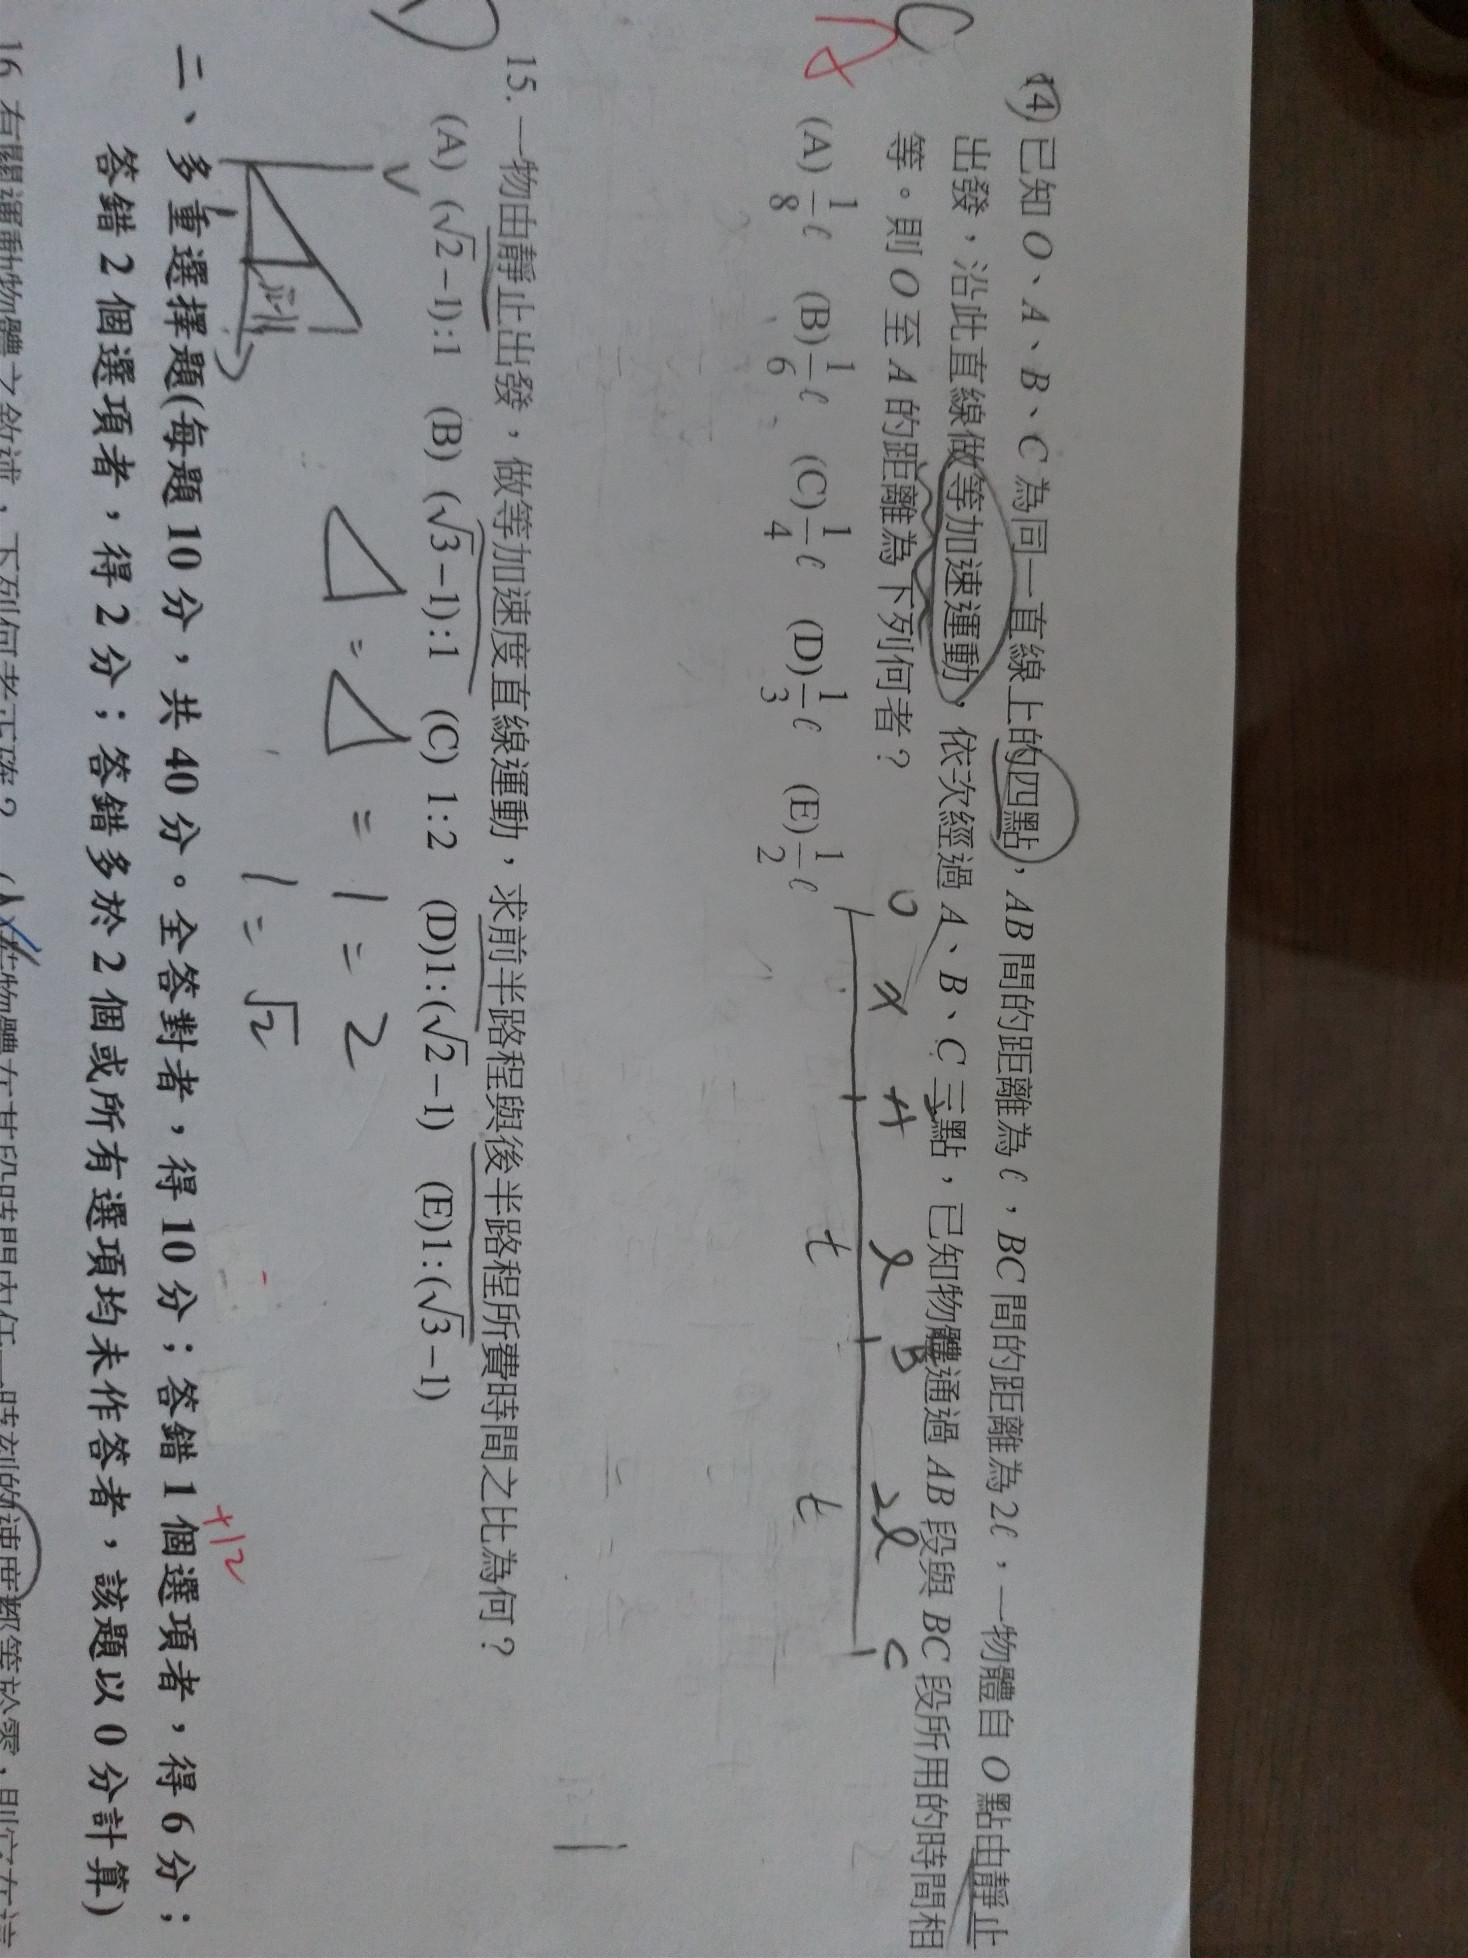 C
A
14. 已知 O、A、B、C 為同一直線上的四點，AB 間的距離為 ℓ，BC 間的距離為 2ℓ，一物體自 O 點由靜止
出發，沿此直線做等加速運動，依次經過 A、B、C 三點，已知物體通過 AB 段與 BC 段所用的時間相
等。則 O 至 A 的距離為下列何者？
(A) 1/8 ℓ (B) 1/6 ℓ (C) 1/4 ℓ (D) 1/3 ℓ (E) 1/2 ℓ
O x A l B 2l C
t t
D
15. 一物由靜止出發，做等加速度直線運動，求前半路程與後半路程所費時間之比為何？
(A) (√2−1):1 (B) (√3−1):1 (C) 1:2 (D)1:(√2−1) (E)1:(√3−1)
V
= = 1 = 2
1 = √2
+12
二、多重選擇題(每題 10 分，共 40 分。全答對者，得 10 分；答錯 1 個選項者，得 6 分；
答錯 2 個選項者，得 2 分；答錯多於 2 個或所有選項均未作答者，該題以 0 分計算)
16. 有關運動物體之敘述，下列何者正確？ (A)若物體在某段時間內任一時刻的速度都等於零，則它在這